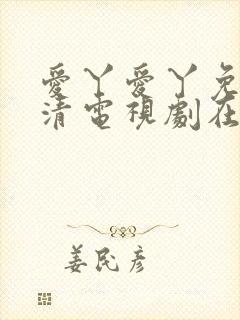 愛丫愛丫免
清電視劇在
姜民彥